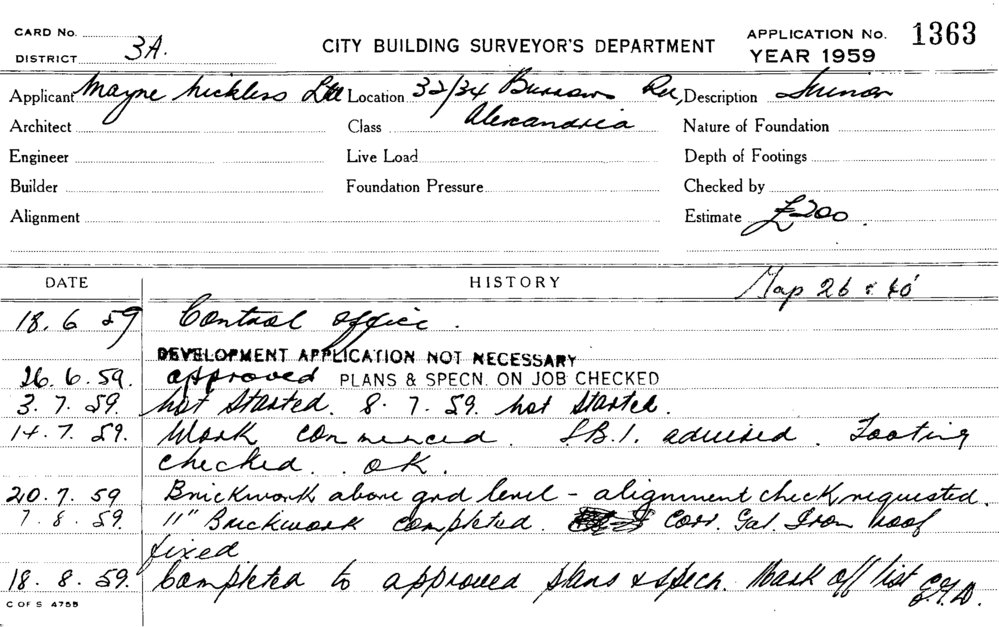 CARD No.
DISTRICT 3A.
CITY BUILDING SURVEYOR'S DEPARTMENT
APPLICATION No. 1363
YEAR 1959
Applicant Mayne Nickless Ltd Location 32/34 Burrows Rd, Description Minor
Architect Class Alexandria Nature of Foundation
Engineer Live Load Depth of Footings
Builder Foundation Pressure Checked by
Alignment Estimate £200.
DATE HISTORY Map 26 & 40'
18. 6 59 Control office.
DEVELOPMENT APPLICATION NOT NECESSARY
26. 6. 59. approved PLANS & SPECN. ON JOB CHECKED
3. 7. 59. not started. 8. 7. 59. not started.
14. 7. 59. Work commenced. advised. Footing
checked. OK.
20. 7. 59 Brickwork above grd level - alignment check requested.
7. 8. 59. 11" Brickwork completed. Corr. Gal. Iron roof
fixed
18. 8. 59. Completed to approved plans & specn. Mark off list
C OF S 4755